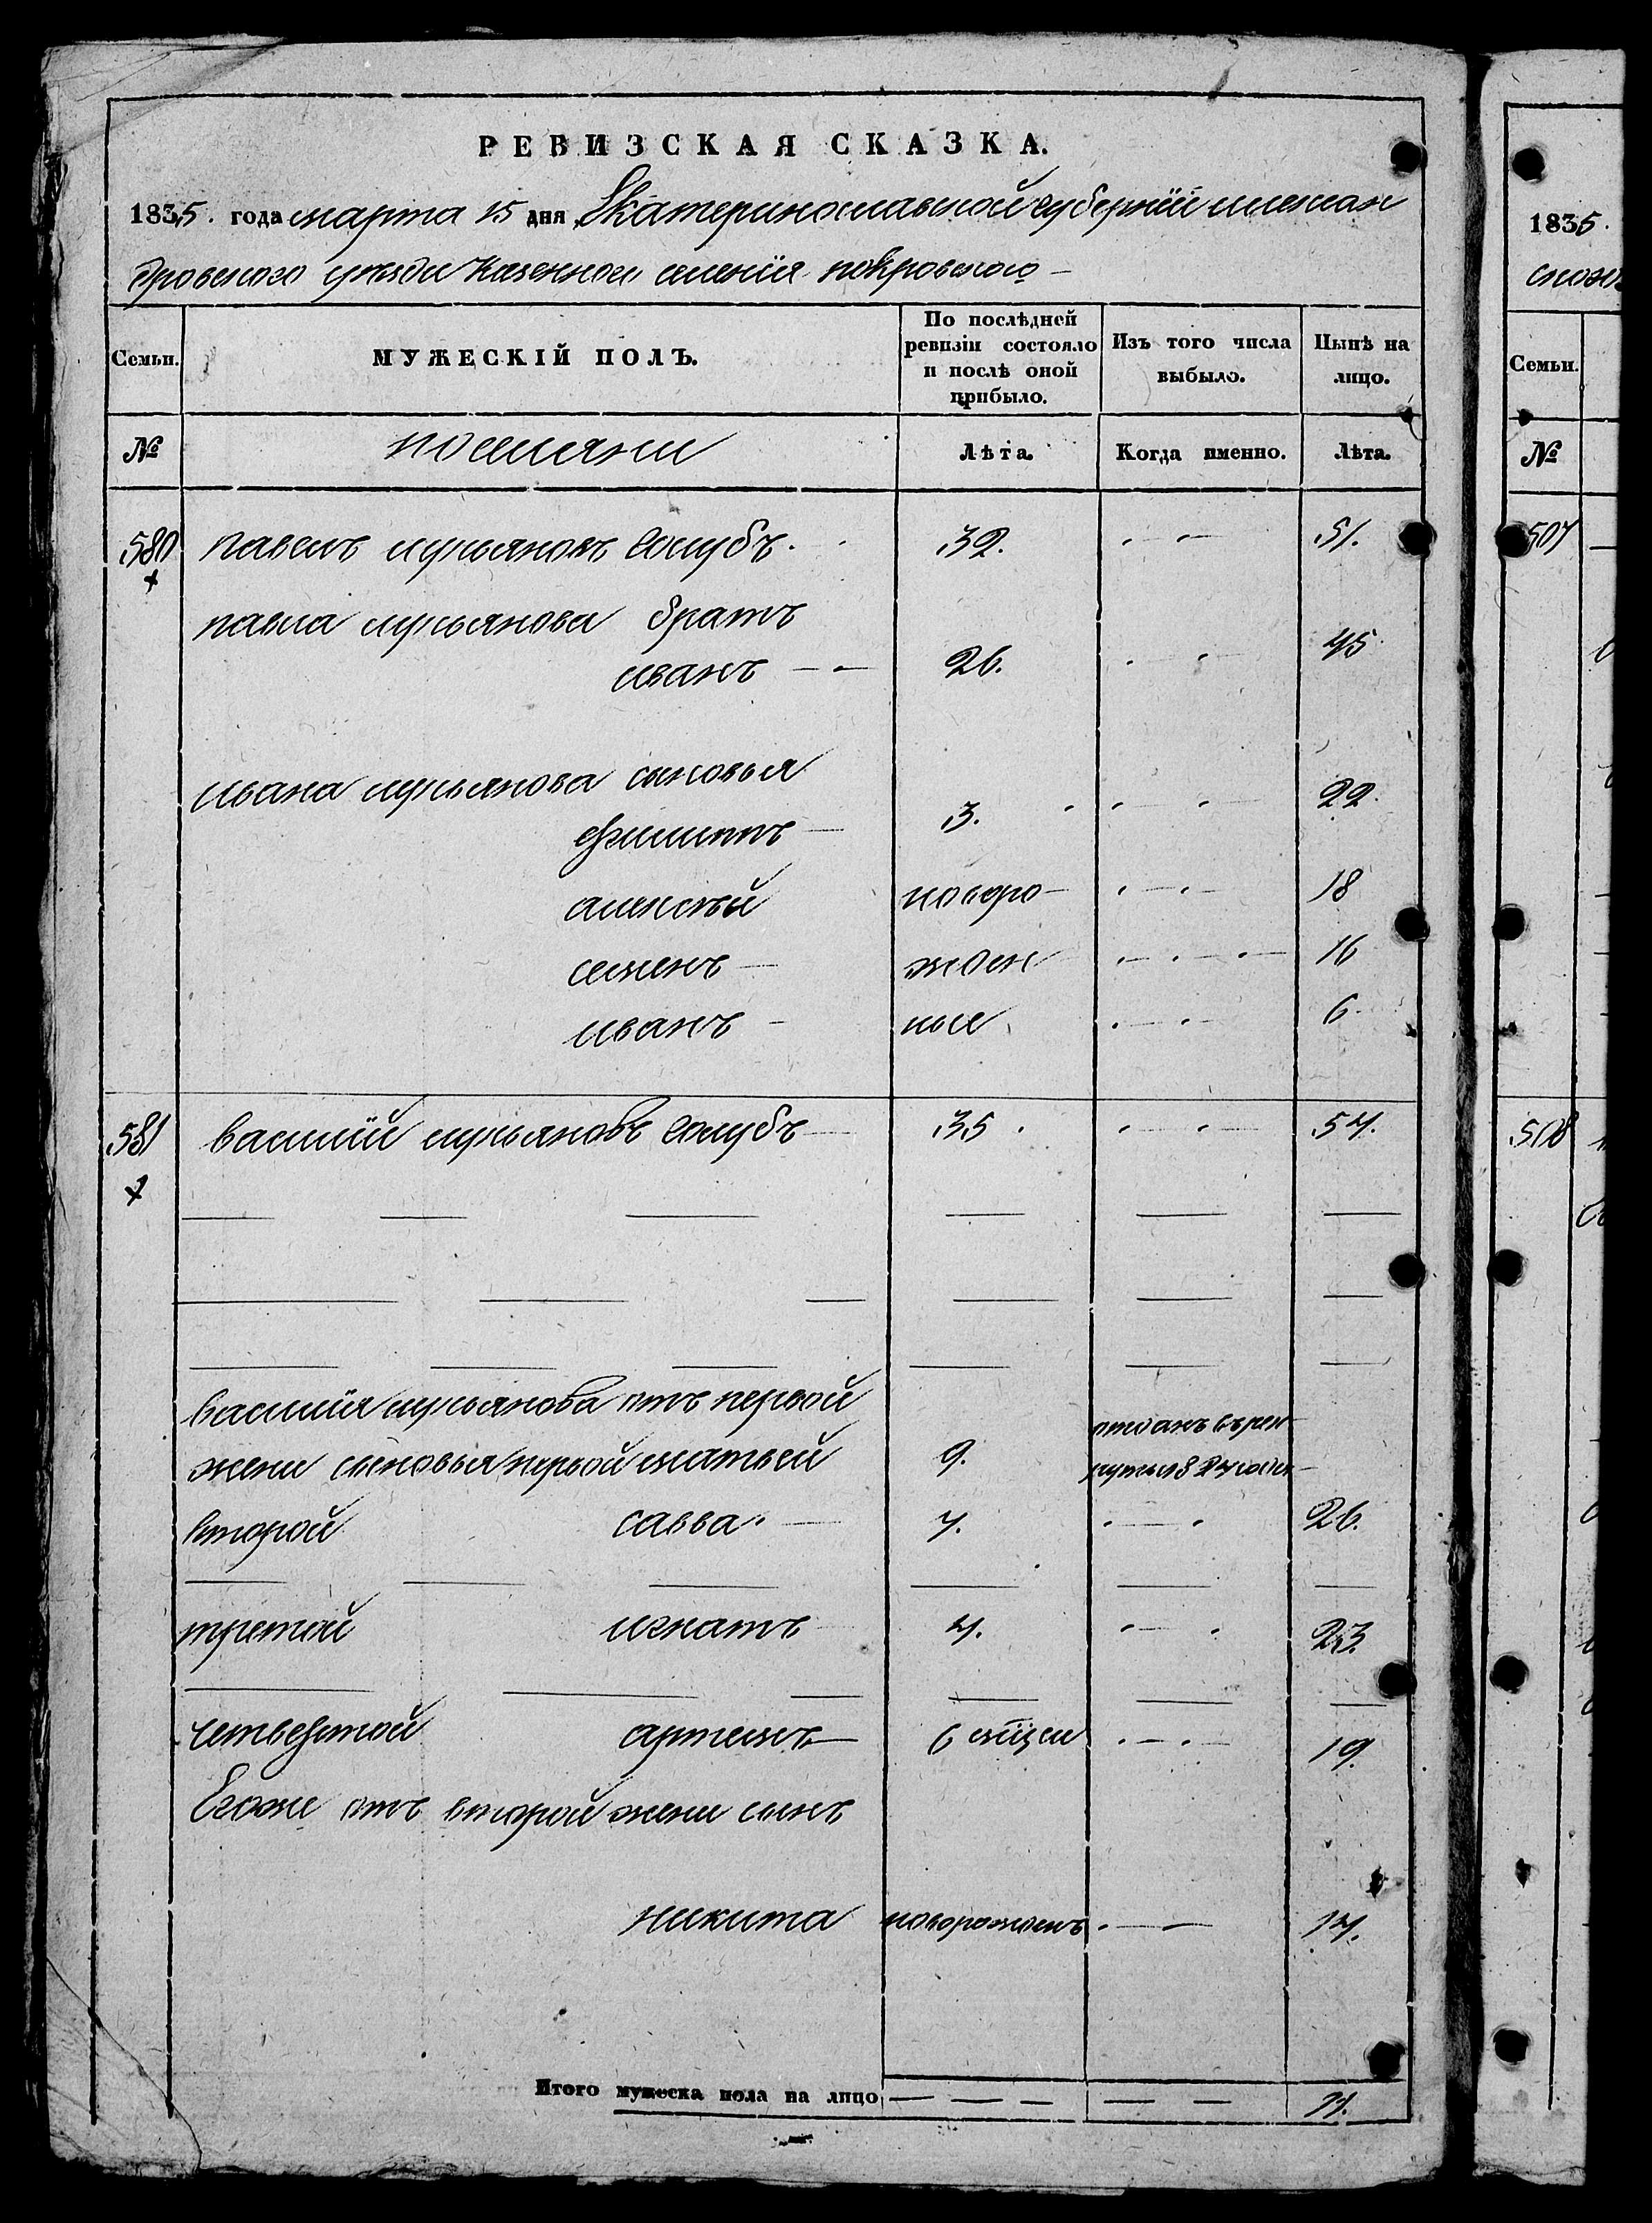 РЕВИЗСКАЯ СКАЗКА.
1835. года марта 15 дня Екатеринославской губерніи алексан
дровского уезда казенного селенія покровского —
Семьи. МУЖЕСКІЙ ПОЛЪ. По послѣдней ревизіи состояло и послѣ оной прибыло. Изъ того числа выбыло. Нынѣ на лицо.
№ поселяни Лѣта. Когда именно. Лѣта.
580 павелъ лукьяновъ голубъ. 32. 51.
павла лукьянова братъ
иванъ — 26. 45
ивана лукьянова сыновья
филиппъ — 3. 22.
алексѣй новоро— 18
семенъ — жден 16
иванъ — ные 6.
581 василій лукьяновъ голубъ — 35. 54.
василія лукьянова отъ первой
жени сыновья первой матвей 9. отданъ въ рек
руты 1824 года
второй савва. — 7. 26.
третой игнатъ 4. 23.
четвертой артемъ — 6 мѣцы 19.
Егоже отъ второй жени сынъ
никита новорожденъ 17.
Итого мужеска пола на лицо 11.
1835.
Семьи.
№
507
508